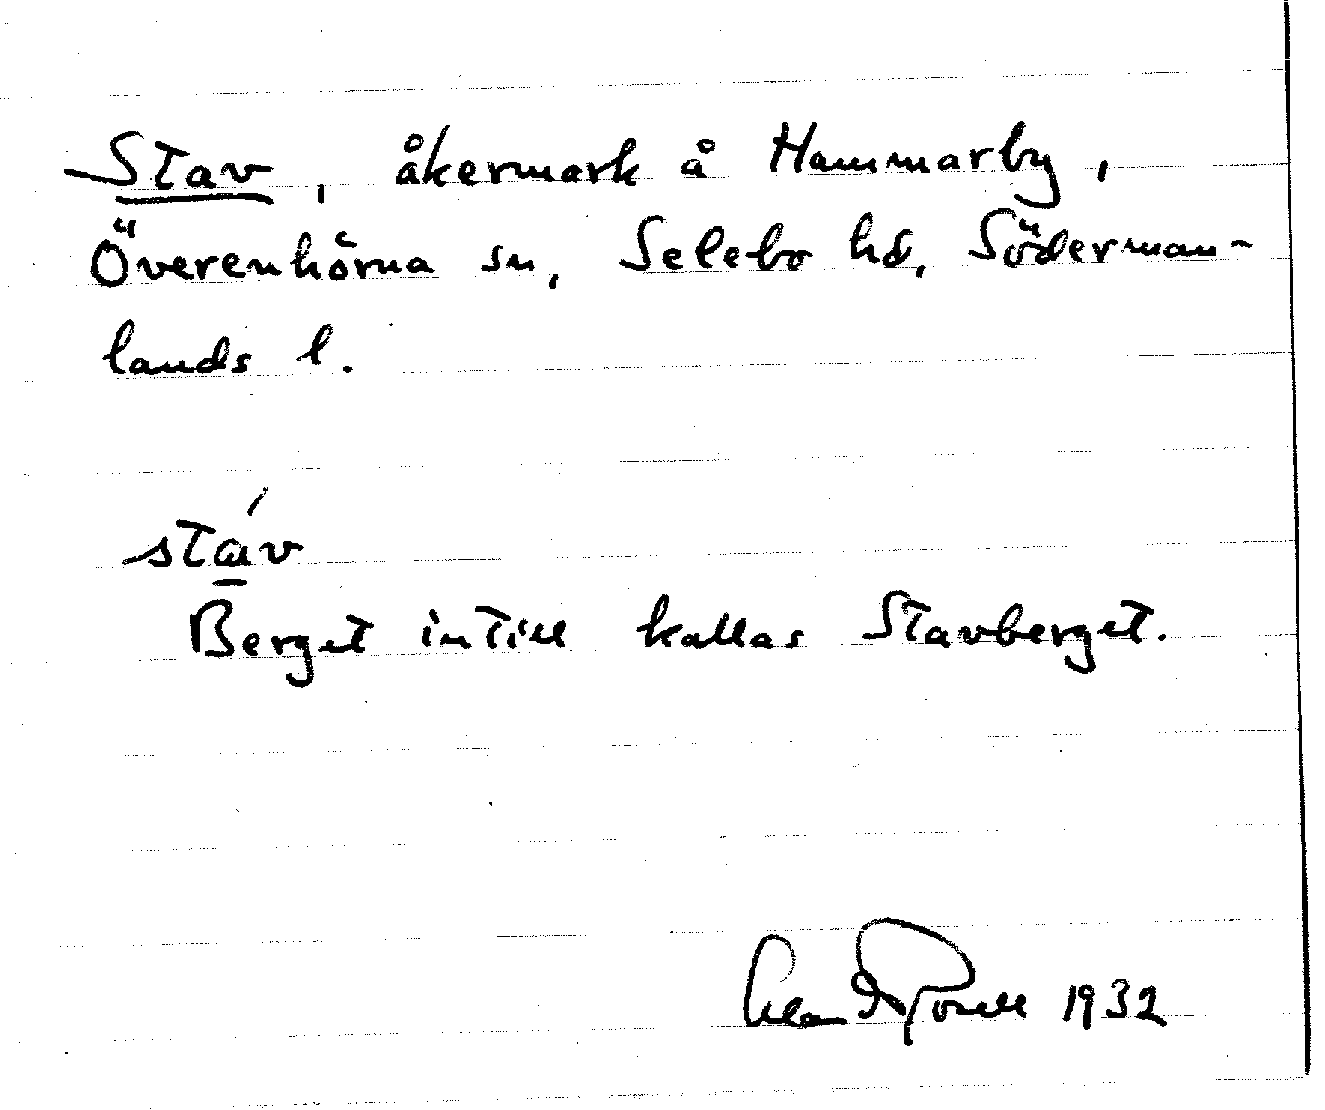 Stav, åkermark å Hammarby,
Överenhörna sn, Selebo hd, Söderman-
lands l.
stáv
Berget intill kallas Stavberget.
1932